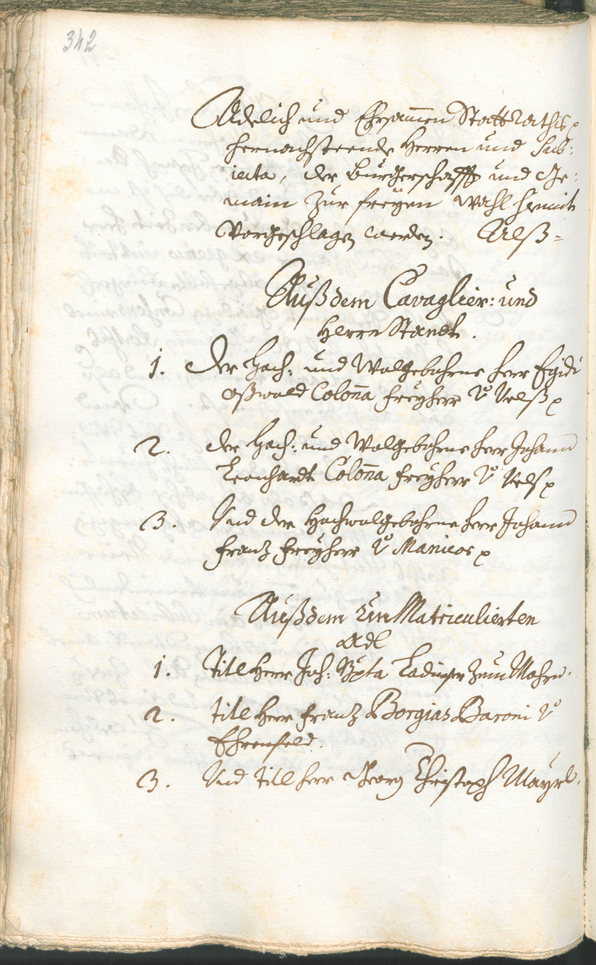 342
Adelich und Ehrsammen Statt Raths
hernachsteende Herren und Sub-
iecta, der Burgerschafft und Ge-
main zur freyen Wahl hiemit
Vorgeschlagen werden. Alß=
Außdem Cavaglier: und
Herrn Standt.
1. Der Hoch: und Wolgebohrne Herr Egidi
Oßwald Colonna Freyherr v Velß
2. der Hoch: und Wolgebohrne Herr Johann
Leonhardt Colonna Freyherr v Velß
3. Und der Hochwolgebohrne Herr Johann
Franz Freyherr v Manicor
Außdem Matriculierten
Adl
1. Titl Herr Joh: Bpta Ladinser zum Mohrn.
2. titl Herr Franz Borgias Baroni v
Ehrenfeld.
3. Und titl Herr Georg Christoph Mayrl.